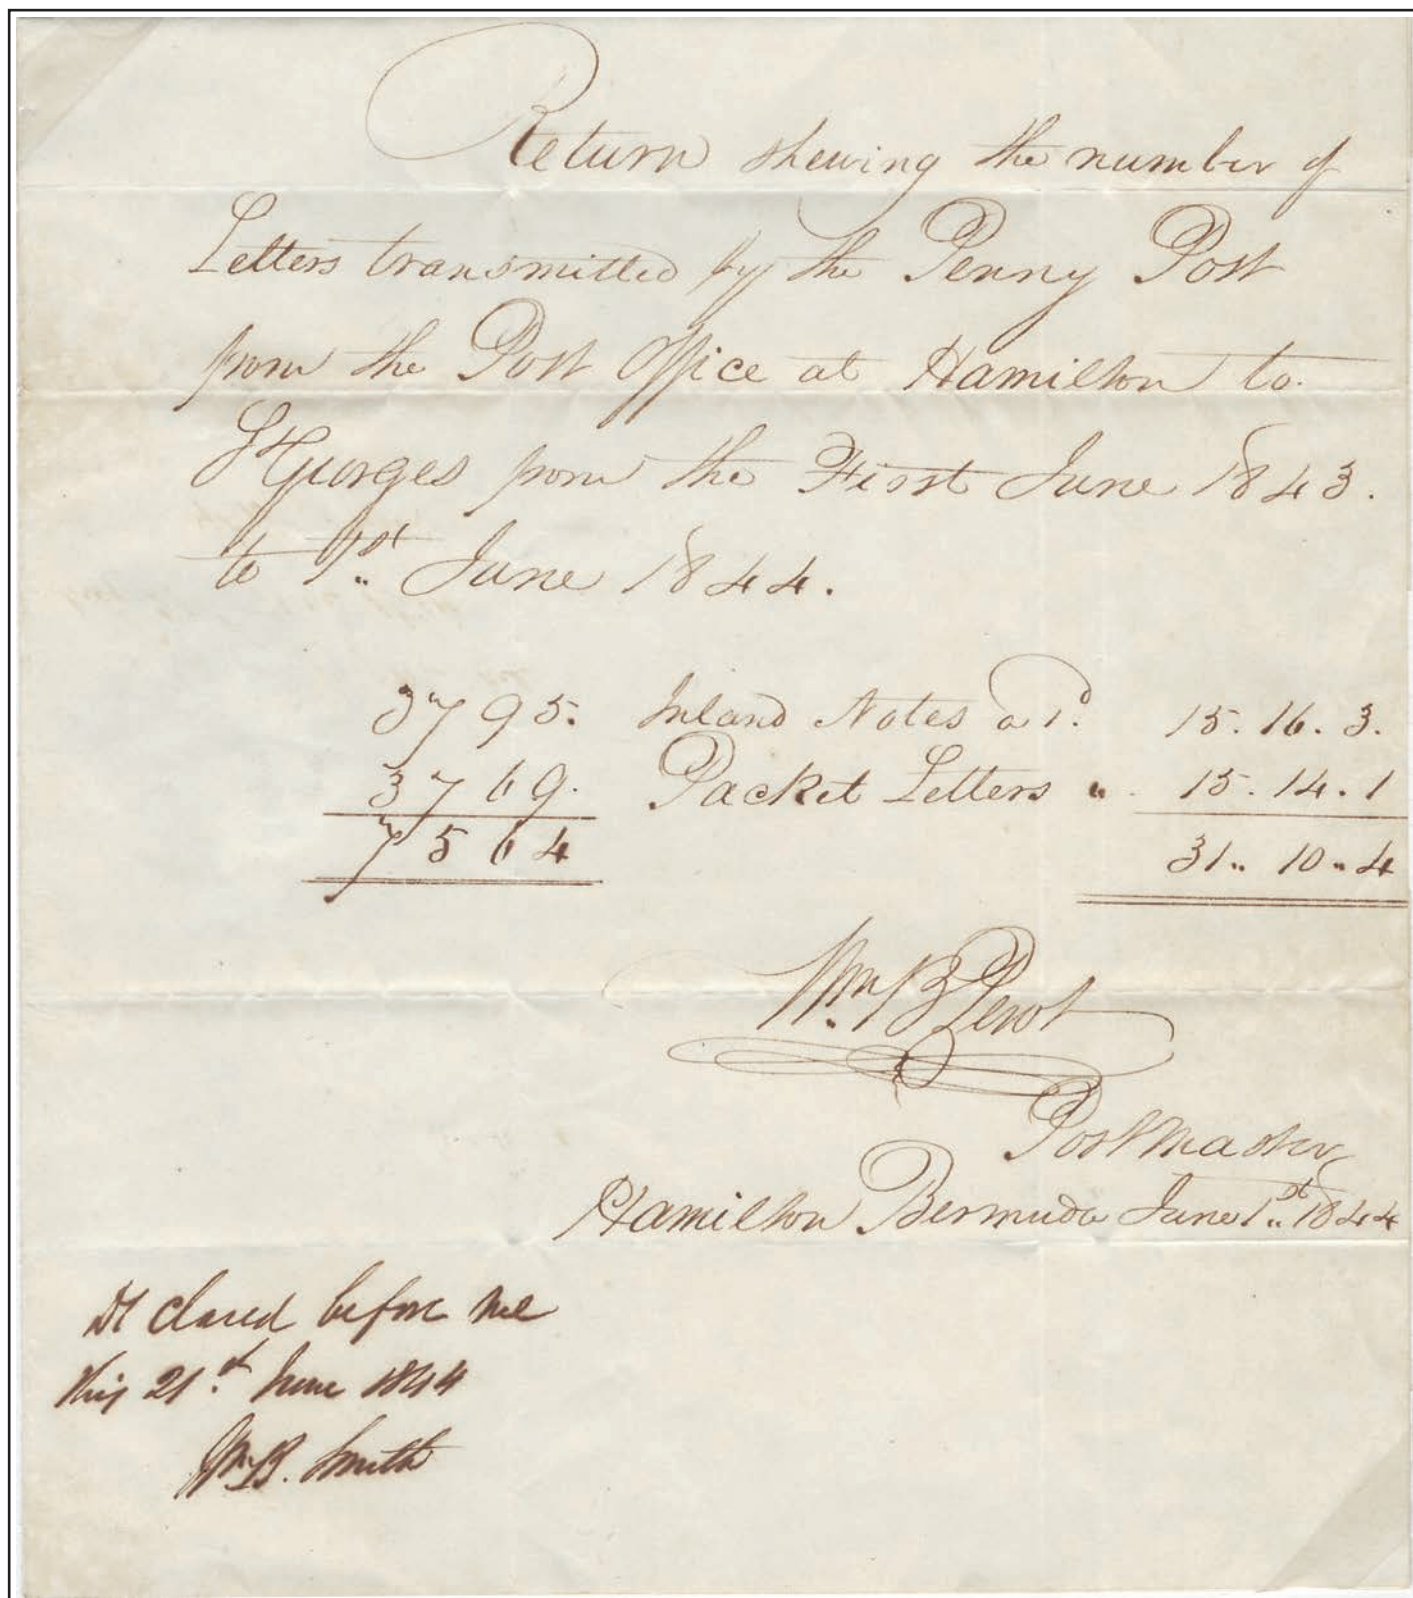 Return shewing the number of
Letters transmitted by the Penny Post
from the Post Office at Hamilton to
St Georges from the First June 1843.
to 1st June 1844.
3795. Inland Notes a 1d. 15. 16. 3.
3769. Packet Letters " 15. 14. 1
7564 31.. 10.. 4
Wm B Perot
Postmaster
Hamilton Bermuda June 1st 1844
Declared before me
this 21st June 1844
Wm B. Smith